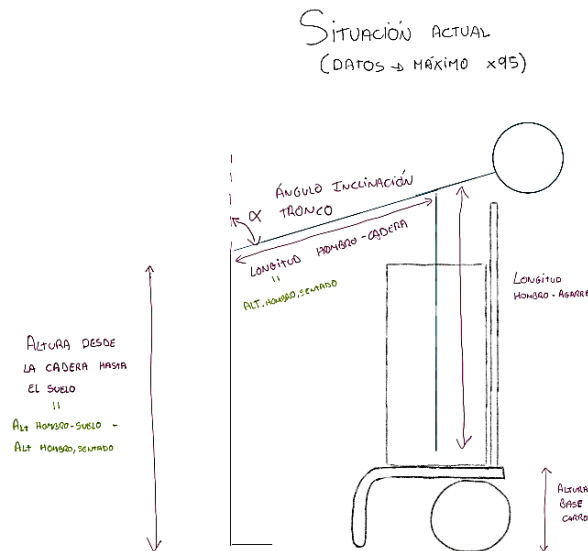 SITUACIÓN ACTUAL
(DATOS → MÁXIMO x95)
ÁNGULO INCLINACIÓN
α TRONCO
LONGITUD HOMBRO-CADERA
=
ALT. HOMBRO, SENTADO
LONGITUD
HOMBRO-AGARRE
ALTURA DESDE
LA CADERA HASTA
EL SUELO
=
ALT HOMBRO-SUELO -
ALT HOMBRO, SENTADO
ALTURA
BASE
CARRO